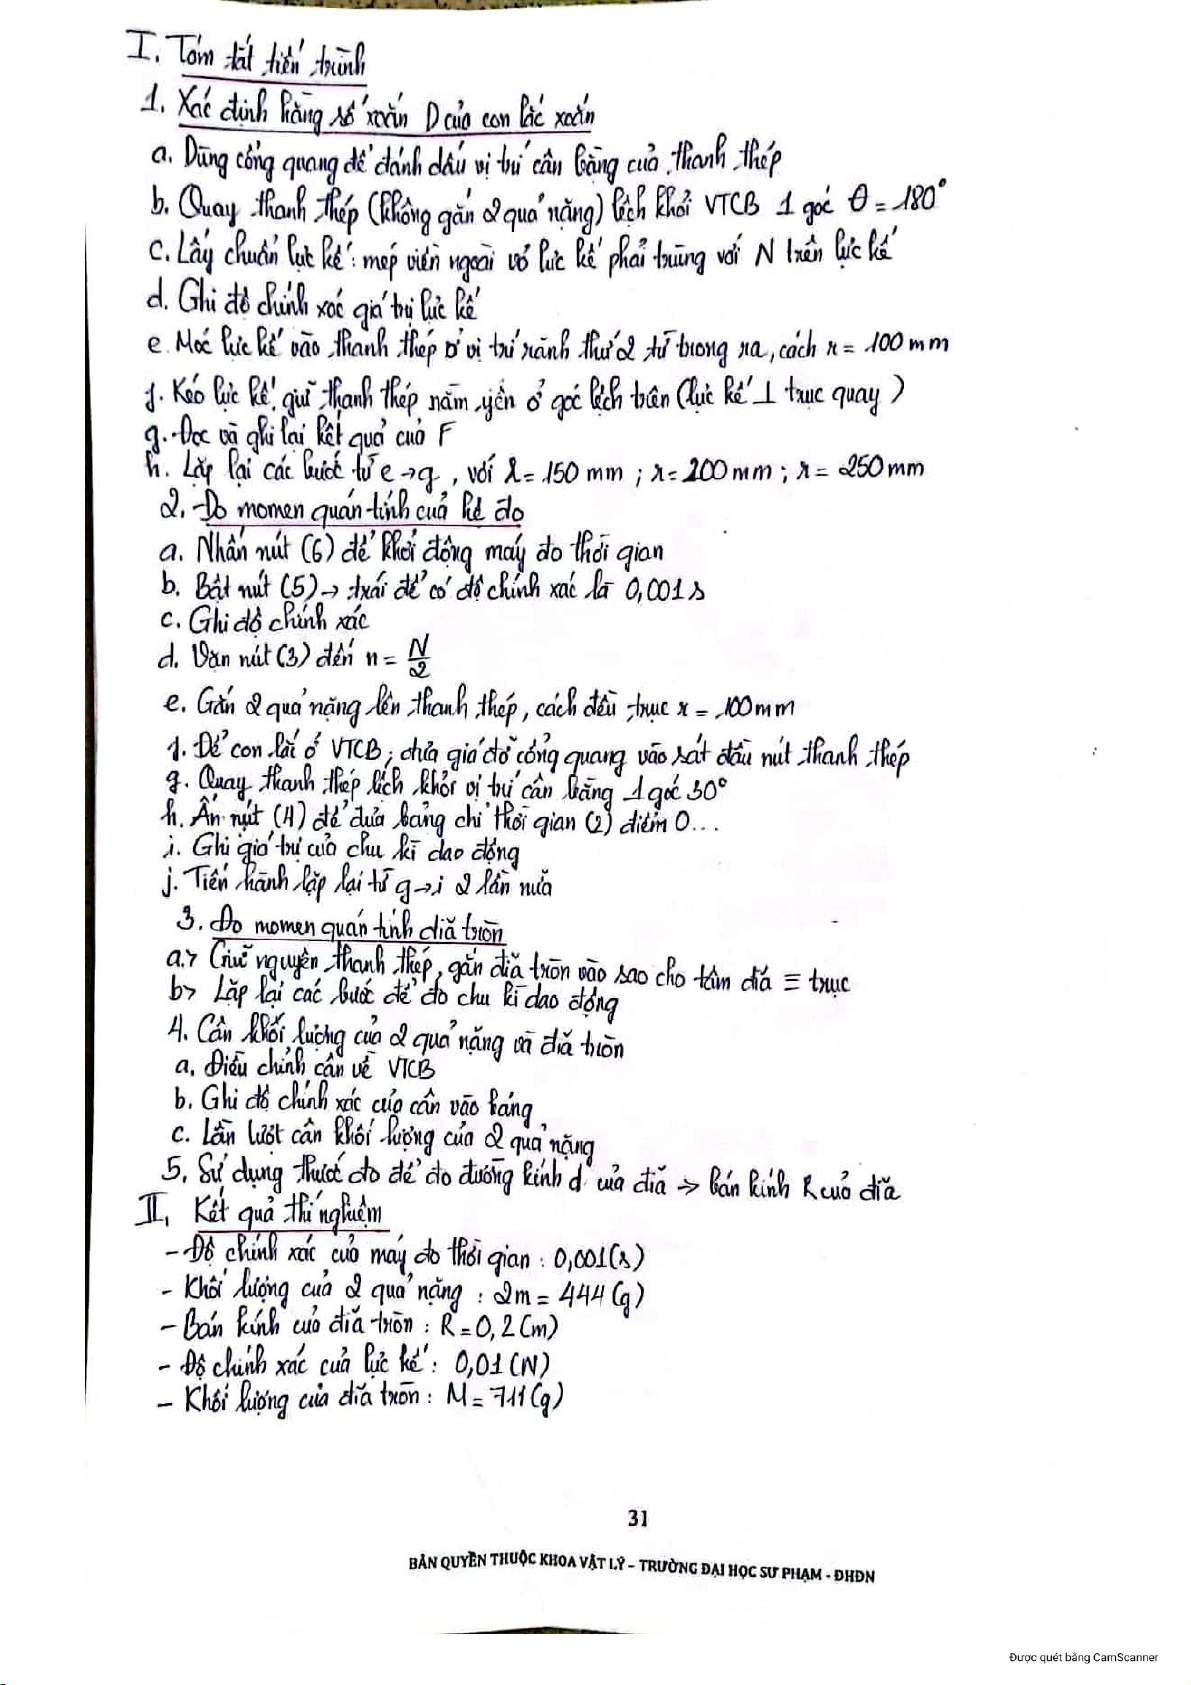 I. Tóm tắt tiến trình
1. Xác định hằng số xoắn D của con lắc xoắn
a. Dùng cổng quang để đánh dấu vị trí cân bằng của thanh thép
b. Quay thanh thép (không gắn 2 quả nặng) lệch khỏi VTCB 1 góc θ = 180°
c. Lấy chuẩn lực kế: mép viền ngoài vỏ lực kế phải trùng với N trên lực kế
d. Ghi độ chính xác giá trị lực kế
e. Móc lực kế vào thanh thép ở vị trí rãnh thứ 2 từ trong ra, cách r = 100 mm
f. Kéo lực kế, giữ thanh thép nằm yên ở góc lệch trên (lực kế ⊥ trục quay)
g. Đọc và ghi lại kết quả của F
h. Lặp lại các bước từ e → g, với r = 150 mm ; r = 200 mm ; r = 250 mm
2. Đo momen quán tính của hệ đo
a. Nhấn nút (6) để khởi động máy đo thời gian
b. Bật nút (5) → trái để có độ chính xác là 0,001 s
c. Ghi độ chính xác
d. Vặn nút (3) đến n = N/2
e. Gắn 2 quả nặng lên thanh thép, cách đều trục r = 100 mm
f. Để con lắc ở VTCB; chứa giá đỡ cổng quang vào sát đầu nút thanh thép
g. Quay thanh thép lệch khỏi vị trí cân bằng 1 góc 30°
h. Ấn nút (4) để đưa bảng chỉ thời gian (2) điểm 0...
i. Ghi giá trị của chu kì dao động
j. Tiến hành lặp lại từ g → i 2 lần nữa
3. Đo momen quán tính đĩa tròn
a> Giữ nguyên thanh thép, gắn đĩa tròn vào sao cho tâm đĩa ≡ trục
b> Lặp lại các bước để đo chu kì dao động
4. Cân khối lượng của 2 quả nặng và đĩa tròn
a. Điều chỉnh cân về VTCB
b. Ghi độ chính xác của cân vào bảng
c. Lần lượt cân khối lượng của 2 quả nặng
5. Sử dụng thước đo để đo đường kính d của đĩa → bán kính R của đĩa
II. Kết quả thí nghiệm
- Độ chính xác của máy đo thời gian : 0,001 (s)
- Khối lượng của 2 quả nặng : 2m = 444 (g)
- Bán kính của đĩa tròn : R = 0,2 (m)
- Độ chính xác của lực kế : 0,01 (N)
- Khối lượng của đĩa tròn : M = 711 (g)
31
BẢN QUYỀN THUỘC KHOA VẬT LÝ – TRƯỜNG ĐẠI HỌC SƯ PHẠM - ĐHĐN
Được quét bằng CamScanner